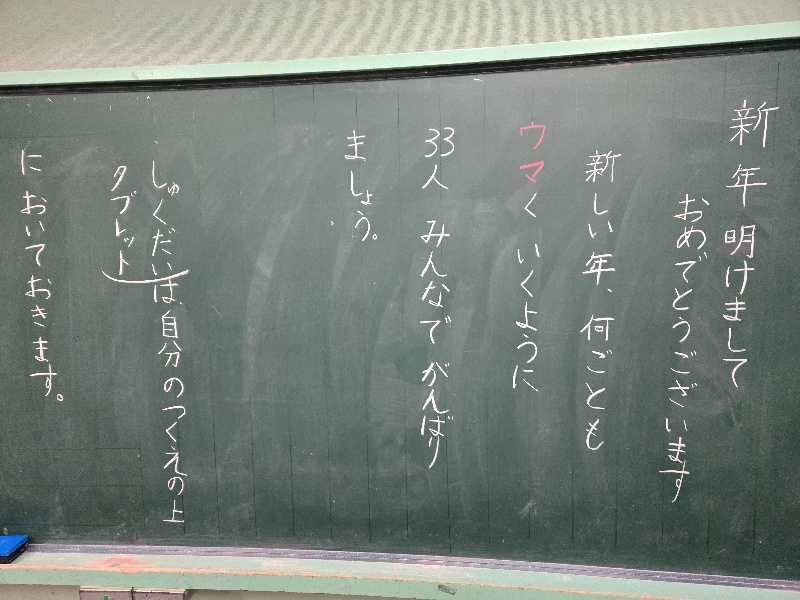 新年明けまして
おめでとうございます
新しい年、何ごとも
ウマくいくように
33人 みんなで がんばり
ましょう。
しゅくだいは、自分のつくえの上
タブレット
に おいておきます。